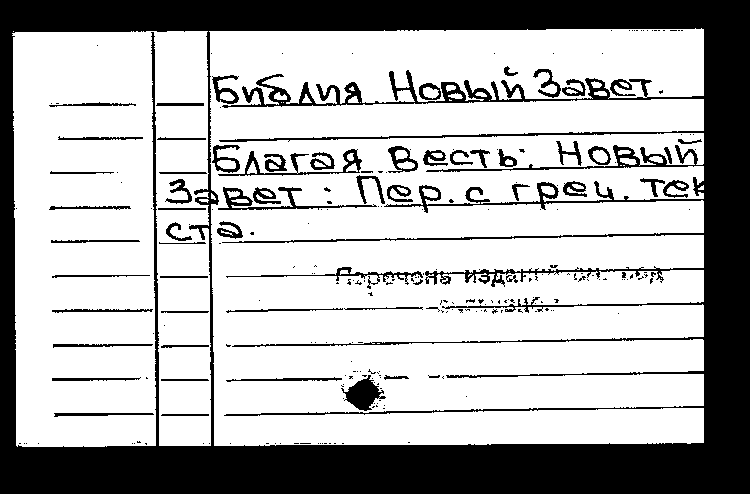 Библия Новый Завет.
Благая весть: Новый
Завет : Пер. с греч. тек
ста.
Перечень изданий см. под